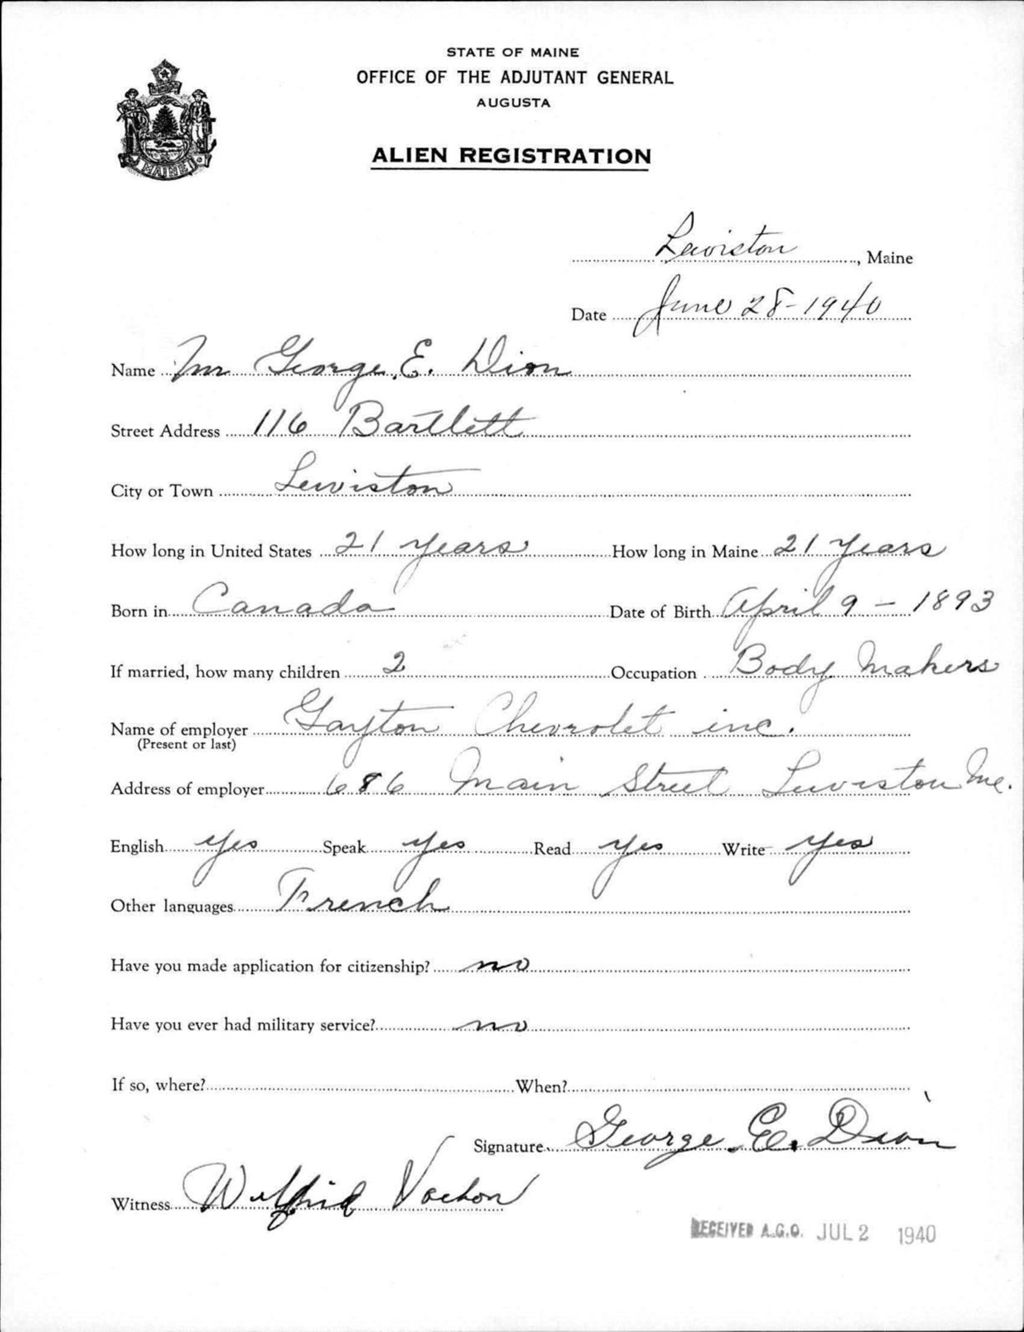 STATE OF MAINE
OFFICE OF THE ADJUTANT GENERAL
AUGUSTA
ALIEN REGISTRATION
MAINE
Lewiston, Maine
Date June 28-1940
Name Mr George E. Dion
Street Address 116 Bartlett
City or Town Lewiston
How long in United States 21 years How long in Maine 21 years
Born in Canada Date of Birth April 9 - 1893
If married, how many children 2 Occupation Body Makers
Name of employer Gayton Chevrolet inc.
(Present or last)
Address of employer 686 Main Street Lewiston Me.
English yes Speak yes Read yes Write yes
Other languages French
Have you made application for citizenship? no
Have you ever had military service? no
If so, where? When?
Signature George E. Dion
Witness Wilfrid Vachon
RECEIVED A.G.O. JUL 2 1940